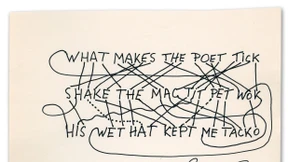 WHAT MAKES THE POET TICK
SHAKE THE MAG TIT PET WOK
HIS WET HAT KEPT ME TACKO